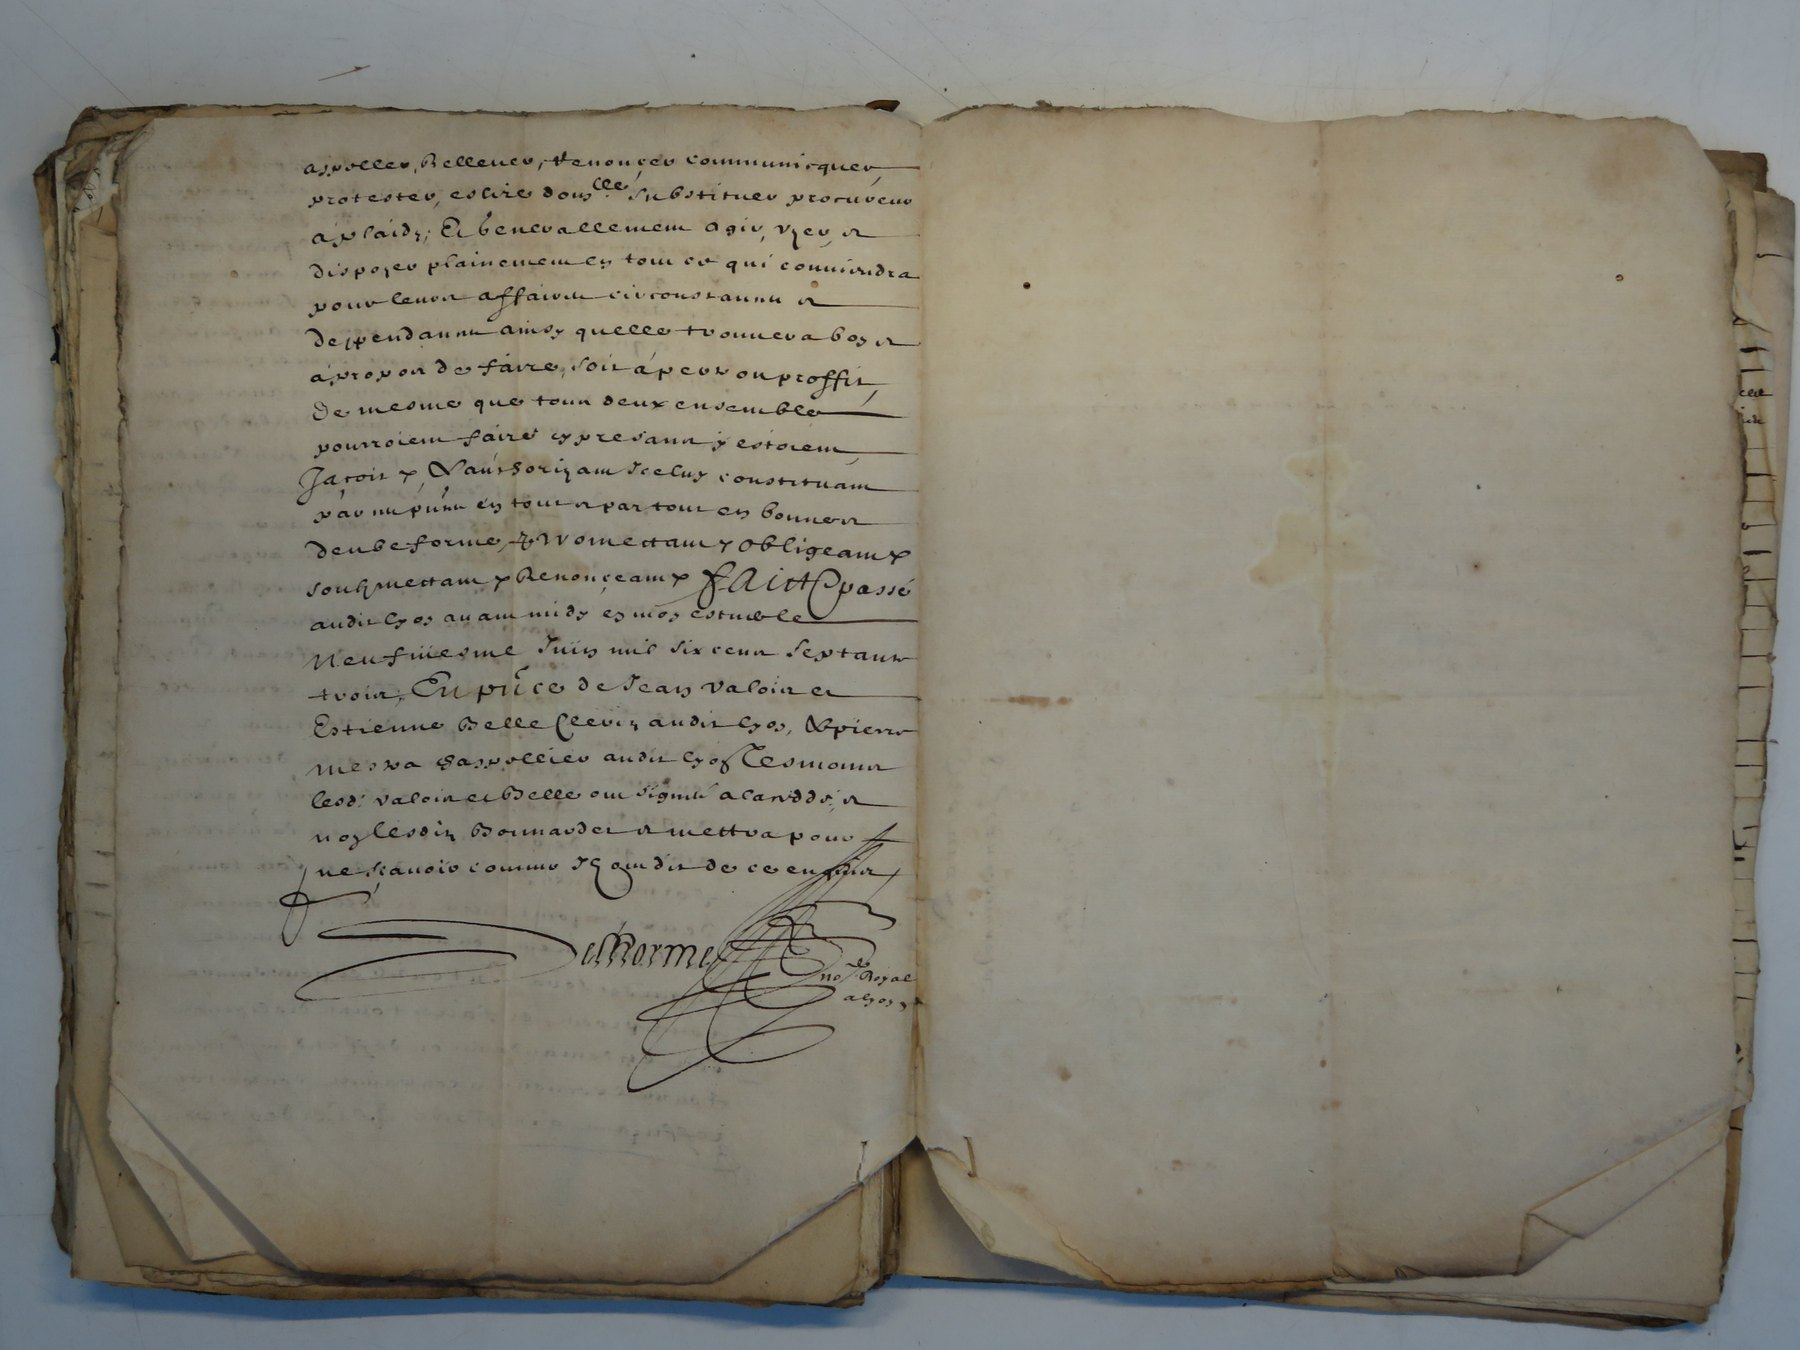 appeller, Relleuer, renonçer communicquer,
protester, eslire dom.lle Substituer procureur
a plaidz; Et Generallement agir, vzer, et
disposer plainement en tout ce qui conuiendra
pour leurs affaires circonstances et
despendances ainsy quelle trouuera bon et
a propos de faire, soit a perte ou proffit,
de mesme que tous deux ensemble
pourroient faire sy presans y estoient
Jacoit &, & authorizant Jceluy constituant
en tout et par tout en bonne et
deube forme, promettant & obligeant &
soubzmettant & Renonçeant & Faict & passé
audit lyon auant midy en mon estude le
Neufuiesme Juin mil six cens septante
trois, En pñce de Jean Valois et
Estienne Belle Clercz audit lyon, & pierre
mespa chappellier audit lyon Tesmoins
lesd: valois et Belle ont signé a la cedde, et
non lesditz Bonnardet et mettra pour
ne sçauoir comme Jlz ont dit de ce enquis
Delhorme
no.re Royal
a lyon